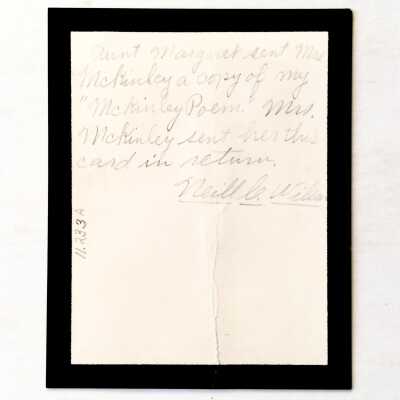 Aunt Margaret sent Mrs.
McKinley a copy of my
"McKinley Poem." Mrs.
McKinley sent her this
card in return.
Neill C.
11.233A